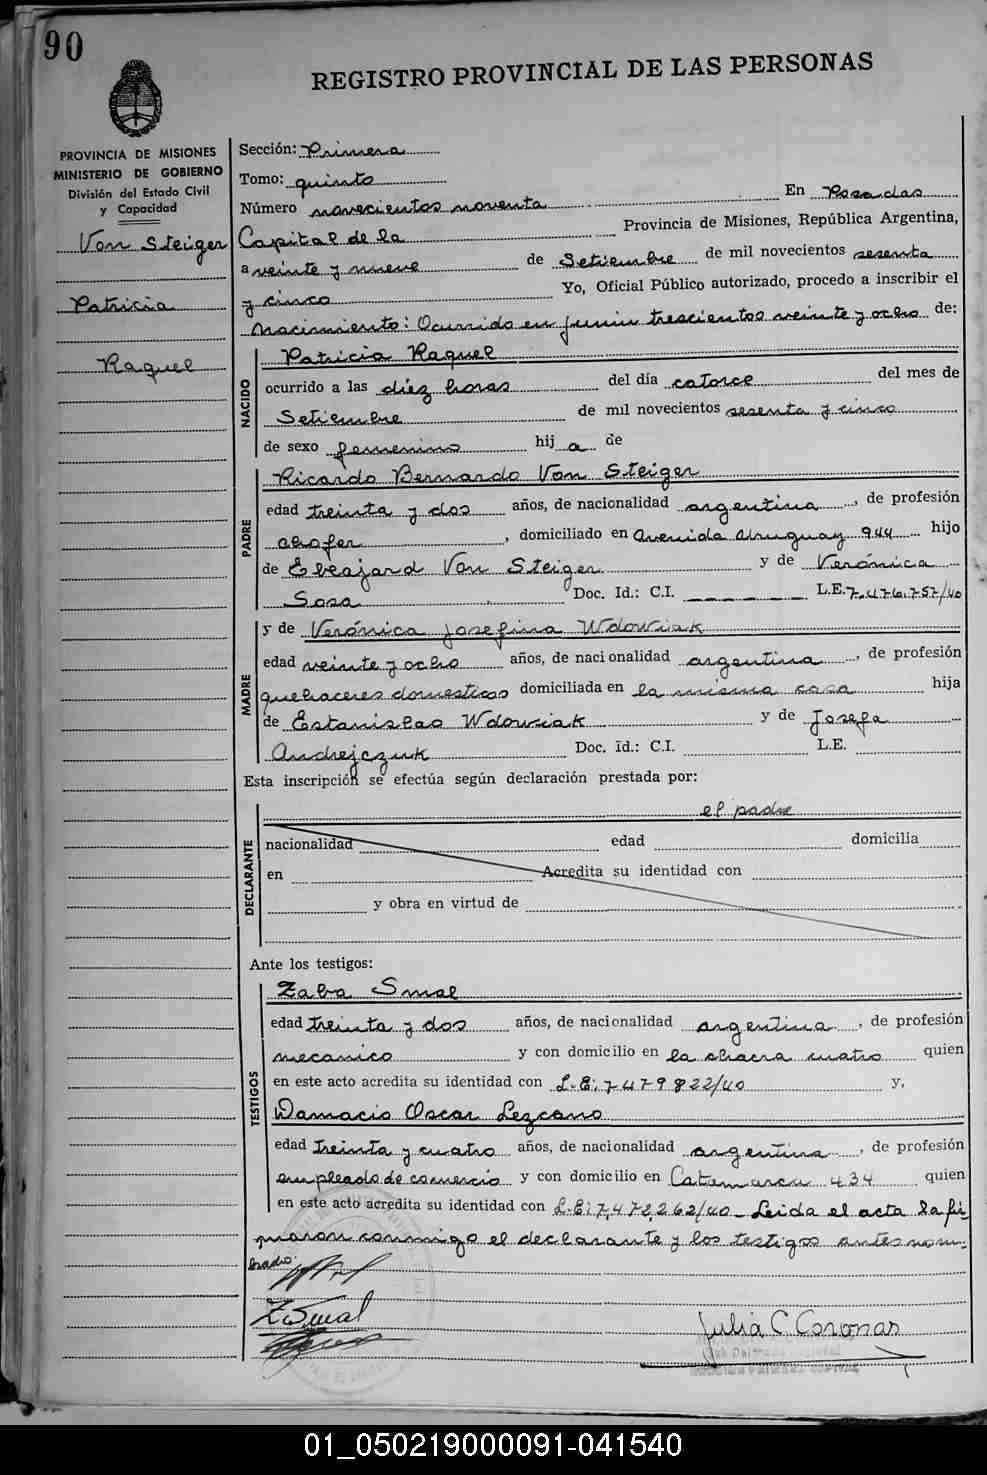 90
REGISTRO PROVINCIAL DE LAS PERSONAS
PROVINCIA DE MISIONES
MINISTERIO DE GOBIERNO
División del Estado Civil
y Capacidad
Von Steiger
Patricia
Raquel
Sección: Primera
Tomo: quinto
Número novecientos noventa En Posadas
Capital de la Provincia de Misiones, República Argentina,
a veinte y nueve de Setiembre de mil novecientos sesenta
y cinco Yo, Oficial Público autorizado, procedo a inscribir el
nacimiento: Ocurrido en Junin trescientos veinte y ocho de:
NACIDO
Patricia Raquel
ocurrido a las diez horas del día catorce del mes de
Setiembre de mil novecientos sesenta y cinco
de sexo femenino hij a de
PADRE
Ricardo Bernardo Von Steiger
edad treinta y dos años, de nacionalidad argentina, de profesión
chofer, domiciliado en Avenida Uruguay 944 hijo
de Eberjard Von Steiger y de Verónica
Sosa Doc. Id.: C.I. L.E. 7.476.757/40
MADRE
y de Verónica Josefina Wdowiak
edad veinte y ocho años, de nacionalidad argentina, de profesión
quehaceres domesticos domiciliada en la misma casa hija
de Estanislao Wdowiak y de Josefa
Andrejczuk Doc. Id.: C.I. L.E.
Esta inscripción se efectúa según declaración prestada por:
DECLARANTE
el padre
nacionalidad edad domicilia
en Acredita su identidad con
y obra en virtud de
Ante los testigos:
TESTIGOS
Zaba Smal
edad treinta y dos años, de nacionalidad argentina, de profesión
mecanico y con domicilio en la chacra cuatro quien
en este acto acredita su identidad con L.E: 7479822/40 y,
Damacio Oscar Lezcano
edad treinta y cuatro años, de nacionalidad argentina, de profesión
empleado de comercio y con domicilio en Catamarca 434 quien
en este acto acredita su identidad con L.E: 7,472,262/40_ Leida el acta la fi-
rmaron conmigo el declarante y los testigos antes nom-
brado
Z Smal
Julia C. Coronas
01_050219000091-041540